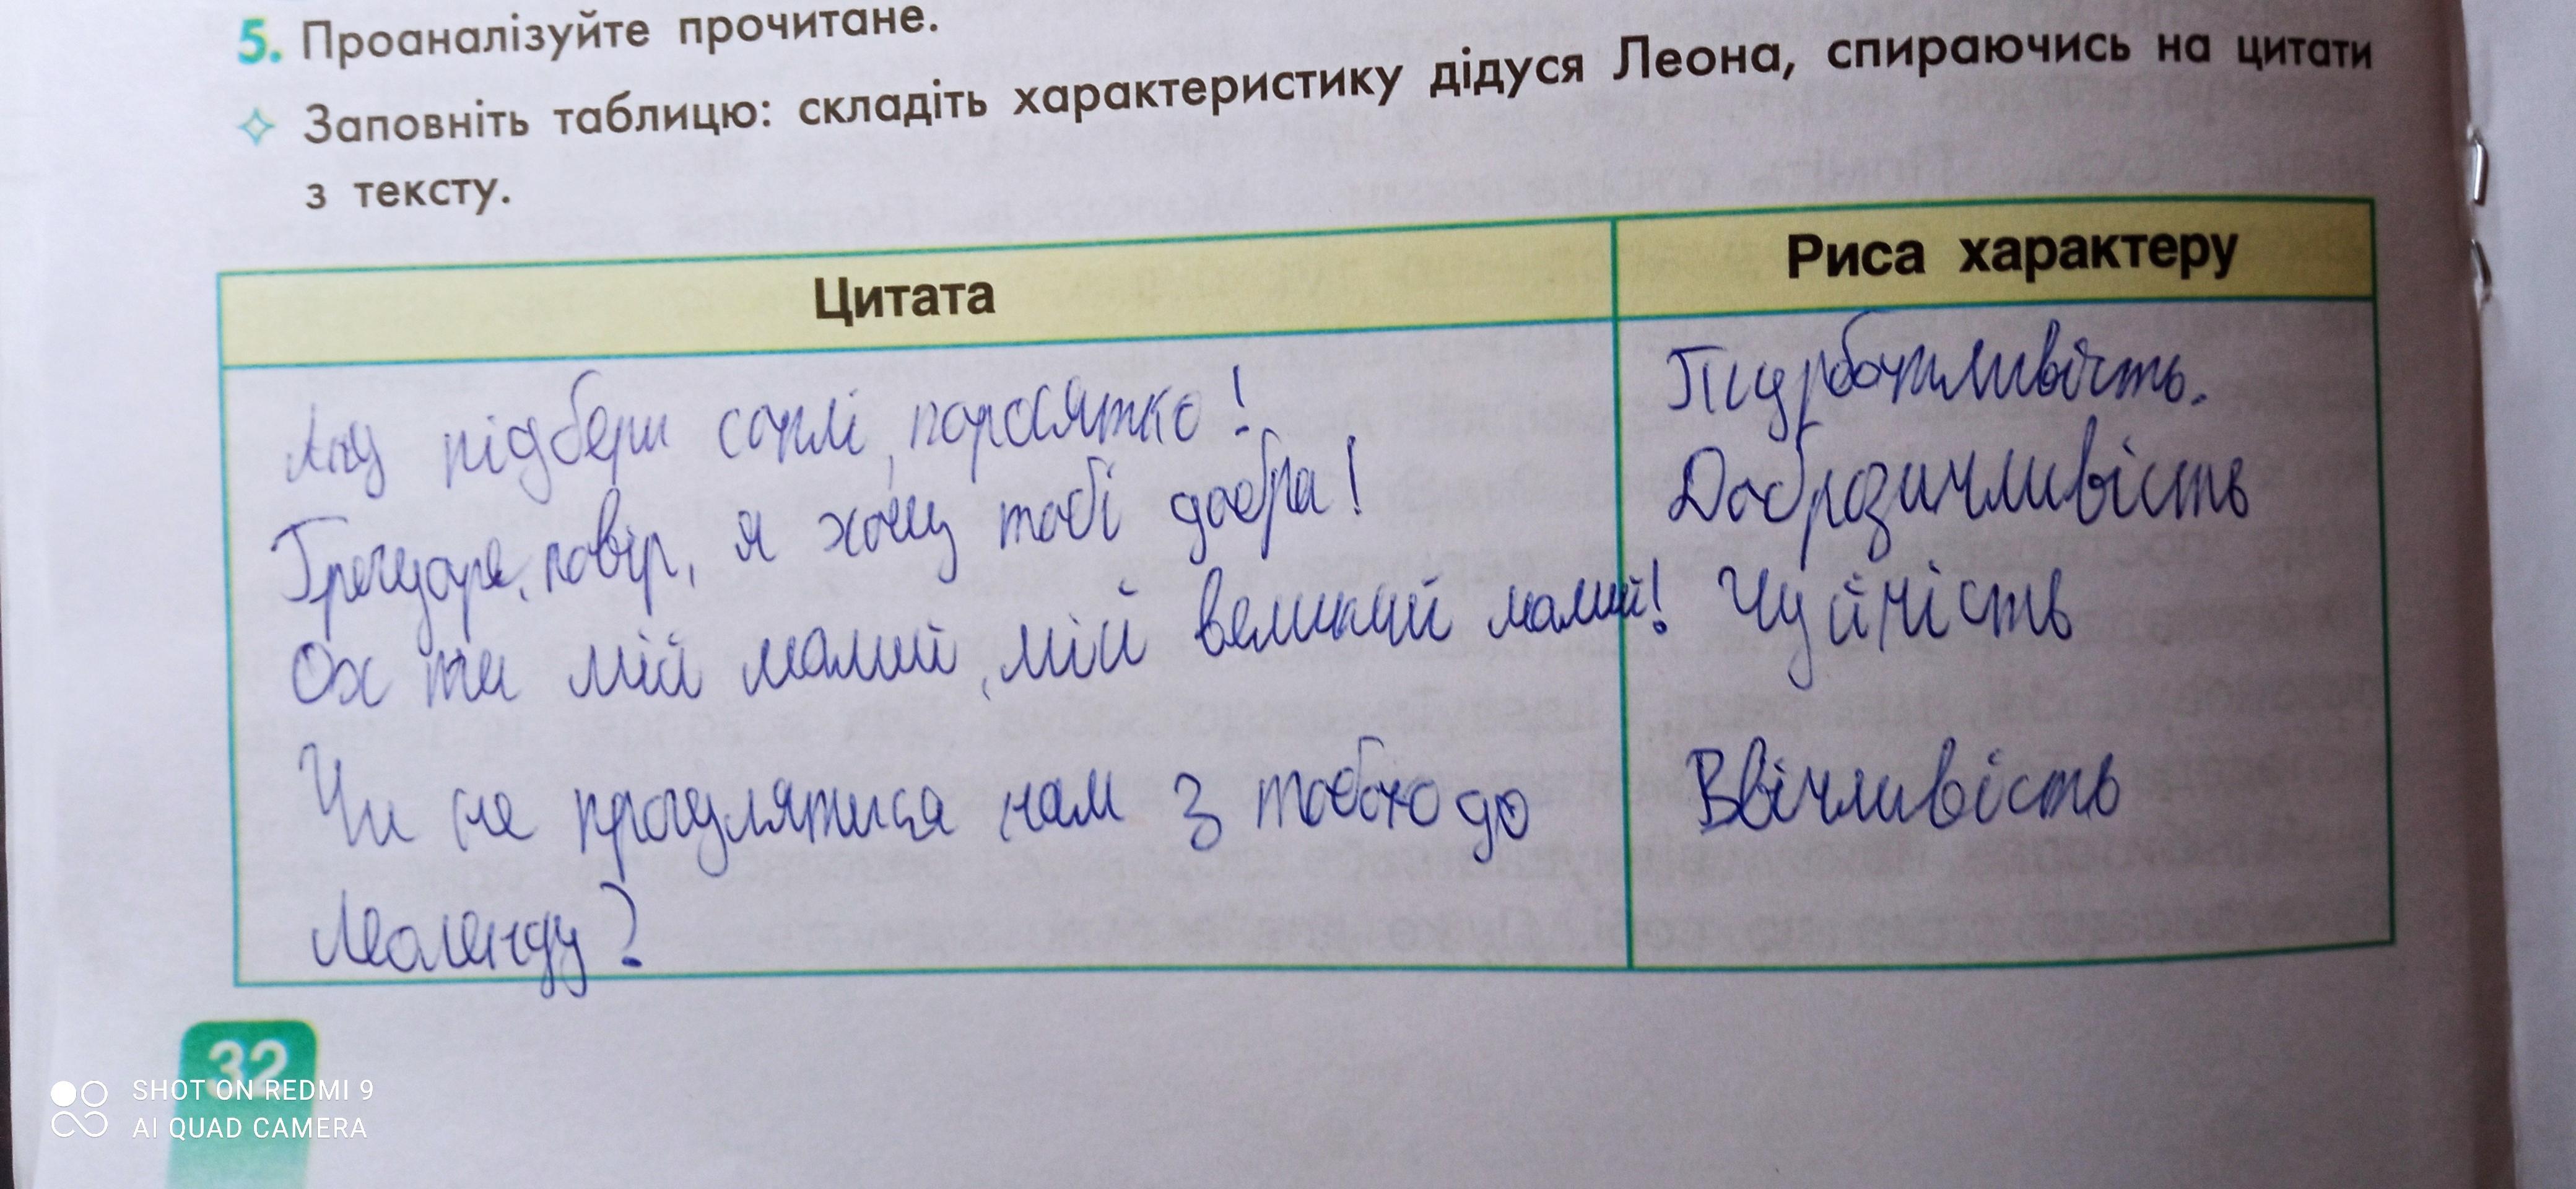 5. Проаналізуйте прочитане.
✧ Заповніть таблицю: складіть характеристику дідуся Леона, спираючись на цитати
з тексту.
Цитата Риса характеру
Ану підбери соплі, поросятко! Підрботливість.
Грегуаре, повір, я хочу тобі добра! Доброзичливість
Ох ти мій малий, мій великий малий! Чуйність
Чи не прогулятися нам з тобою до Ввічливість
Леоленду?
32
SHOT ON REDMI 9
AI QUAD CAMERA